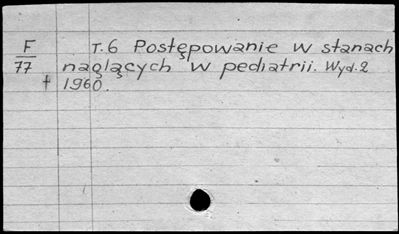 F T.6 Postępowanie w stanach
77 naglących w pediatrii. Wyd.2
† 1960.